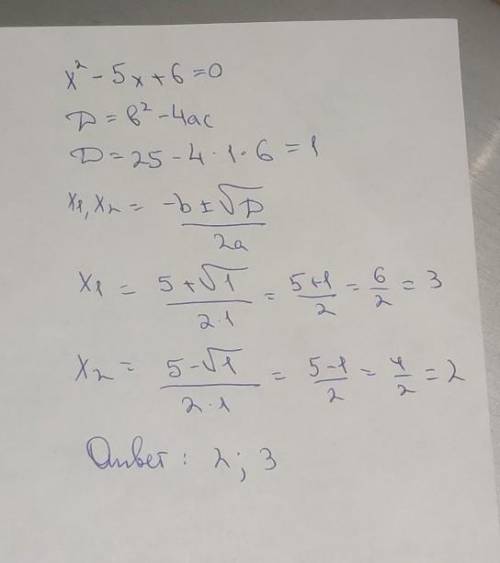 x² - 5x + 6 = 0
D = b² - 4ac
D = 25 - 4 · 1 · 6 = 1
x₁, x₂ = (-b ± √D) / 2a
x₁ = (5 + √1) / (2 · 1) = (5+1) / 2 = 6 / 2 = 3
x₂ = (5 - √1) / (2 · 1) = (5-1) / 2 = 4 / 2 = 2
Ответ: 2; 3